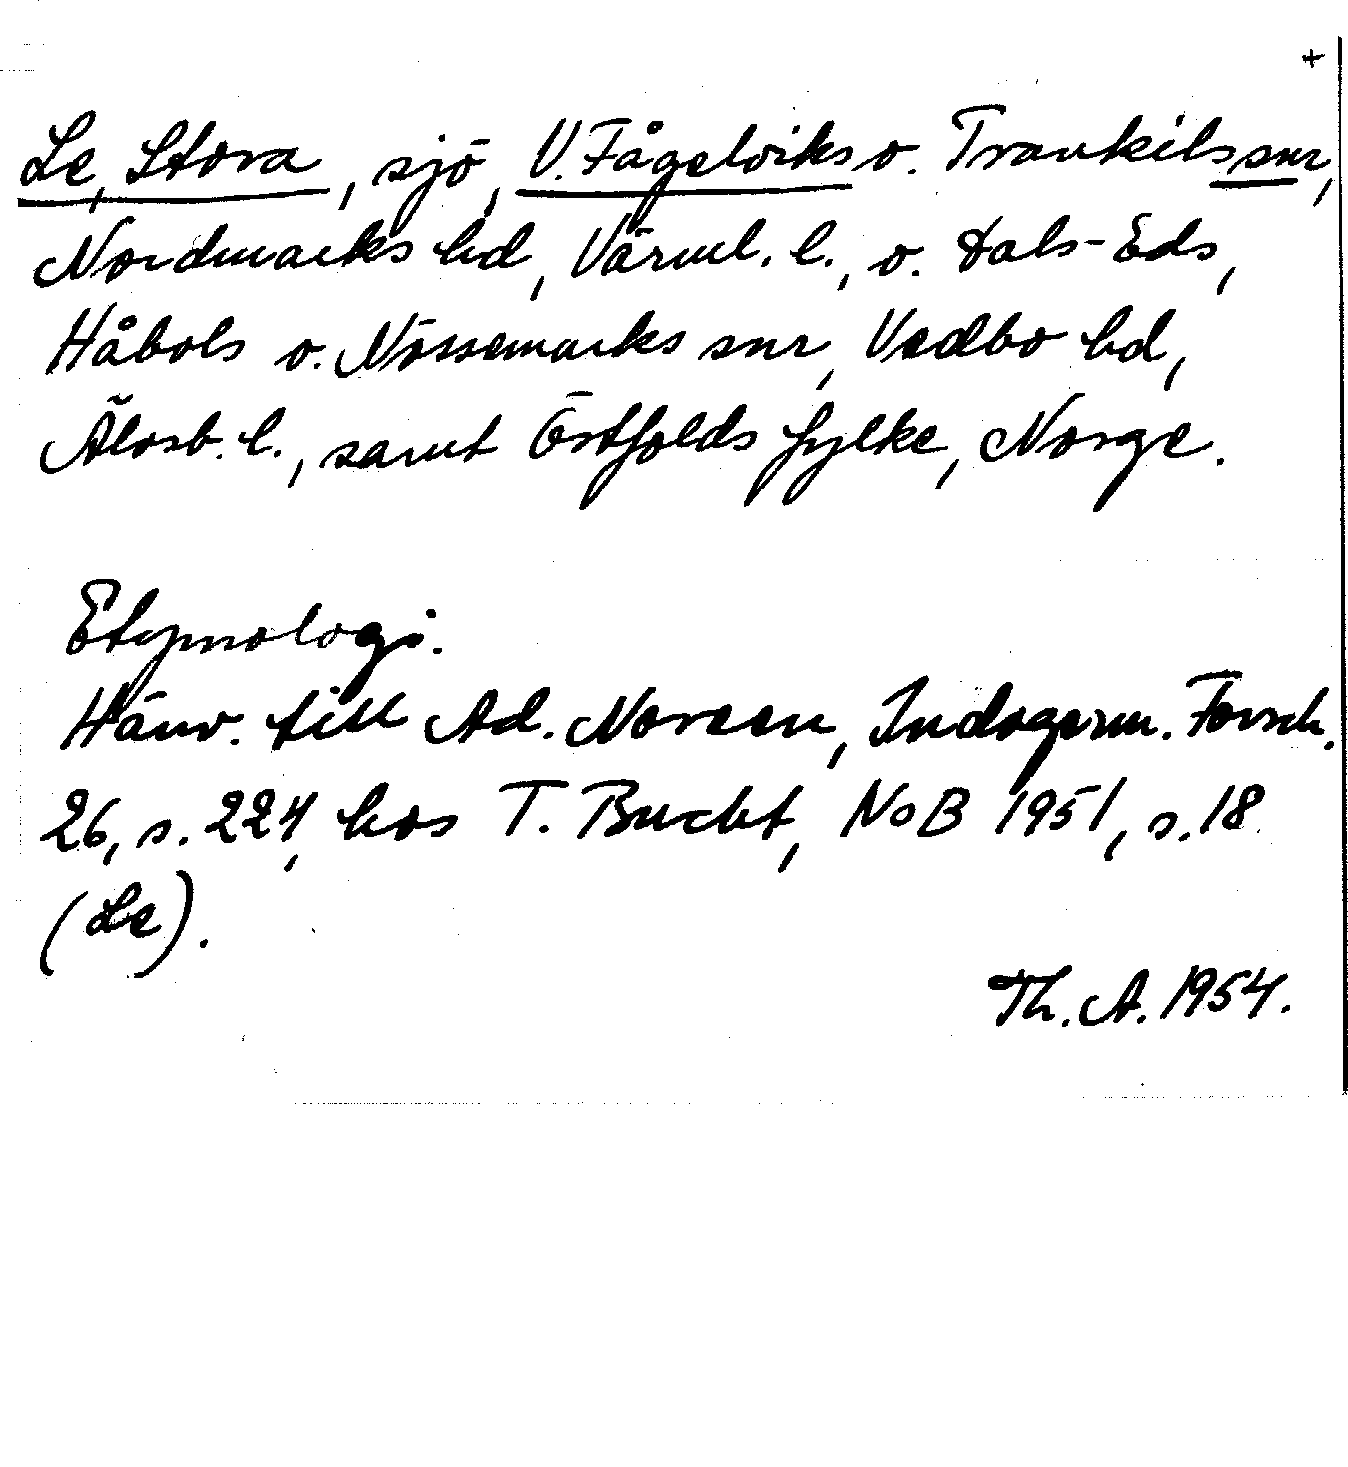 +
Le, Stora, sjö, V. Fågelviks o. Trankils snr,
Nordmarks hd, Värml. l., o. Dals-Eds,
Håbols o. Nössemarks snr, Vedbo hd,
Älvsb. l., samt Östfolds fylke, Norge.
Etymologi.
Hänv. till Ad. Noreen, Indogerm. Forsch.
26, s. 224, hos T. Bucht, NoB 1951, s. 18
(Le).
Th. A. 1954.